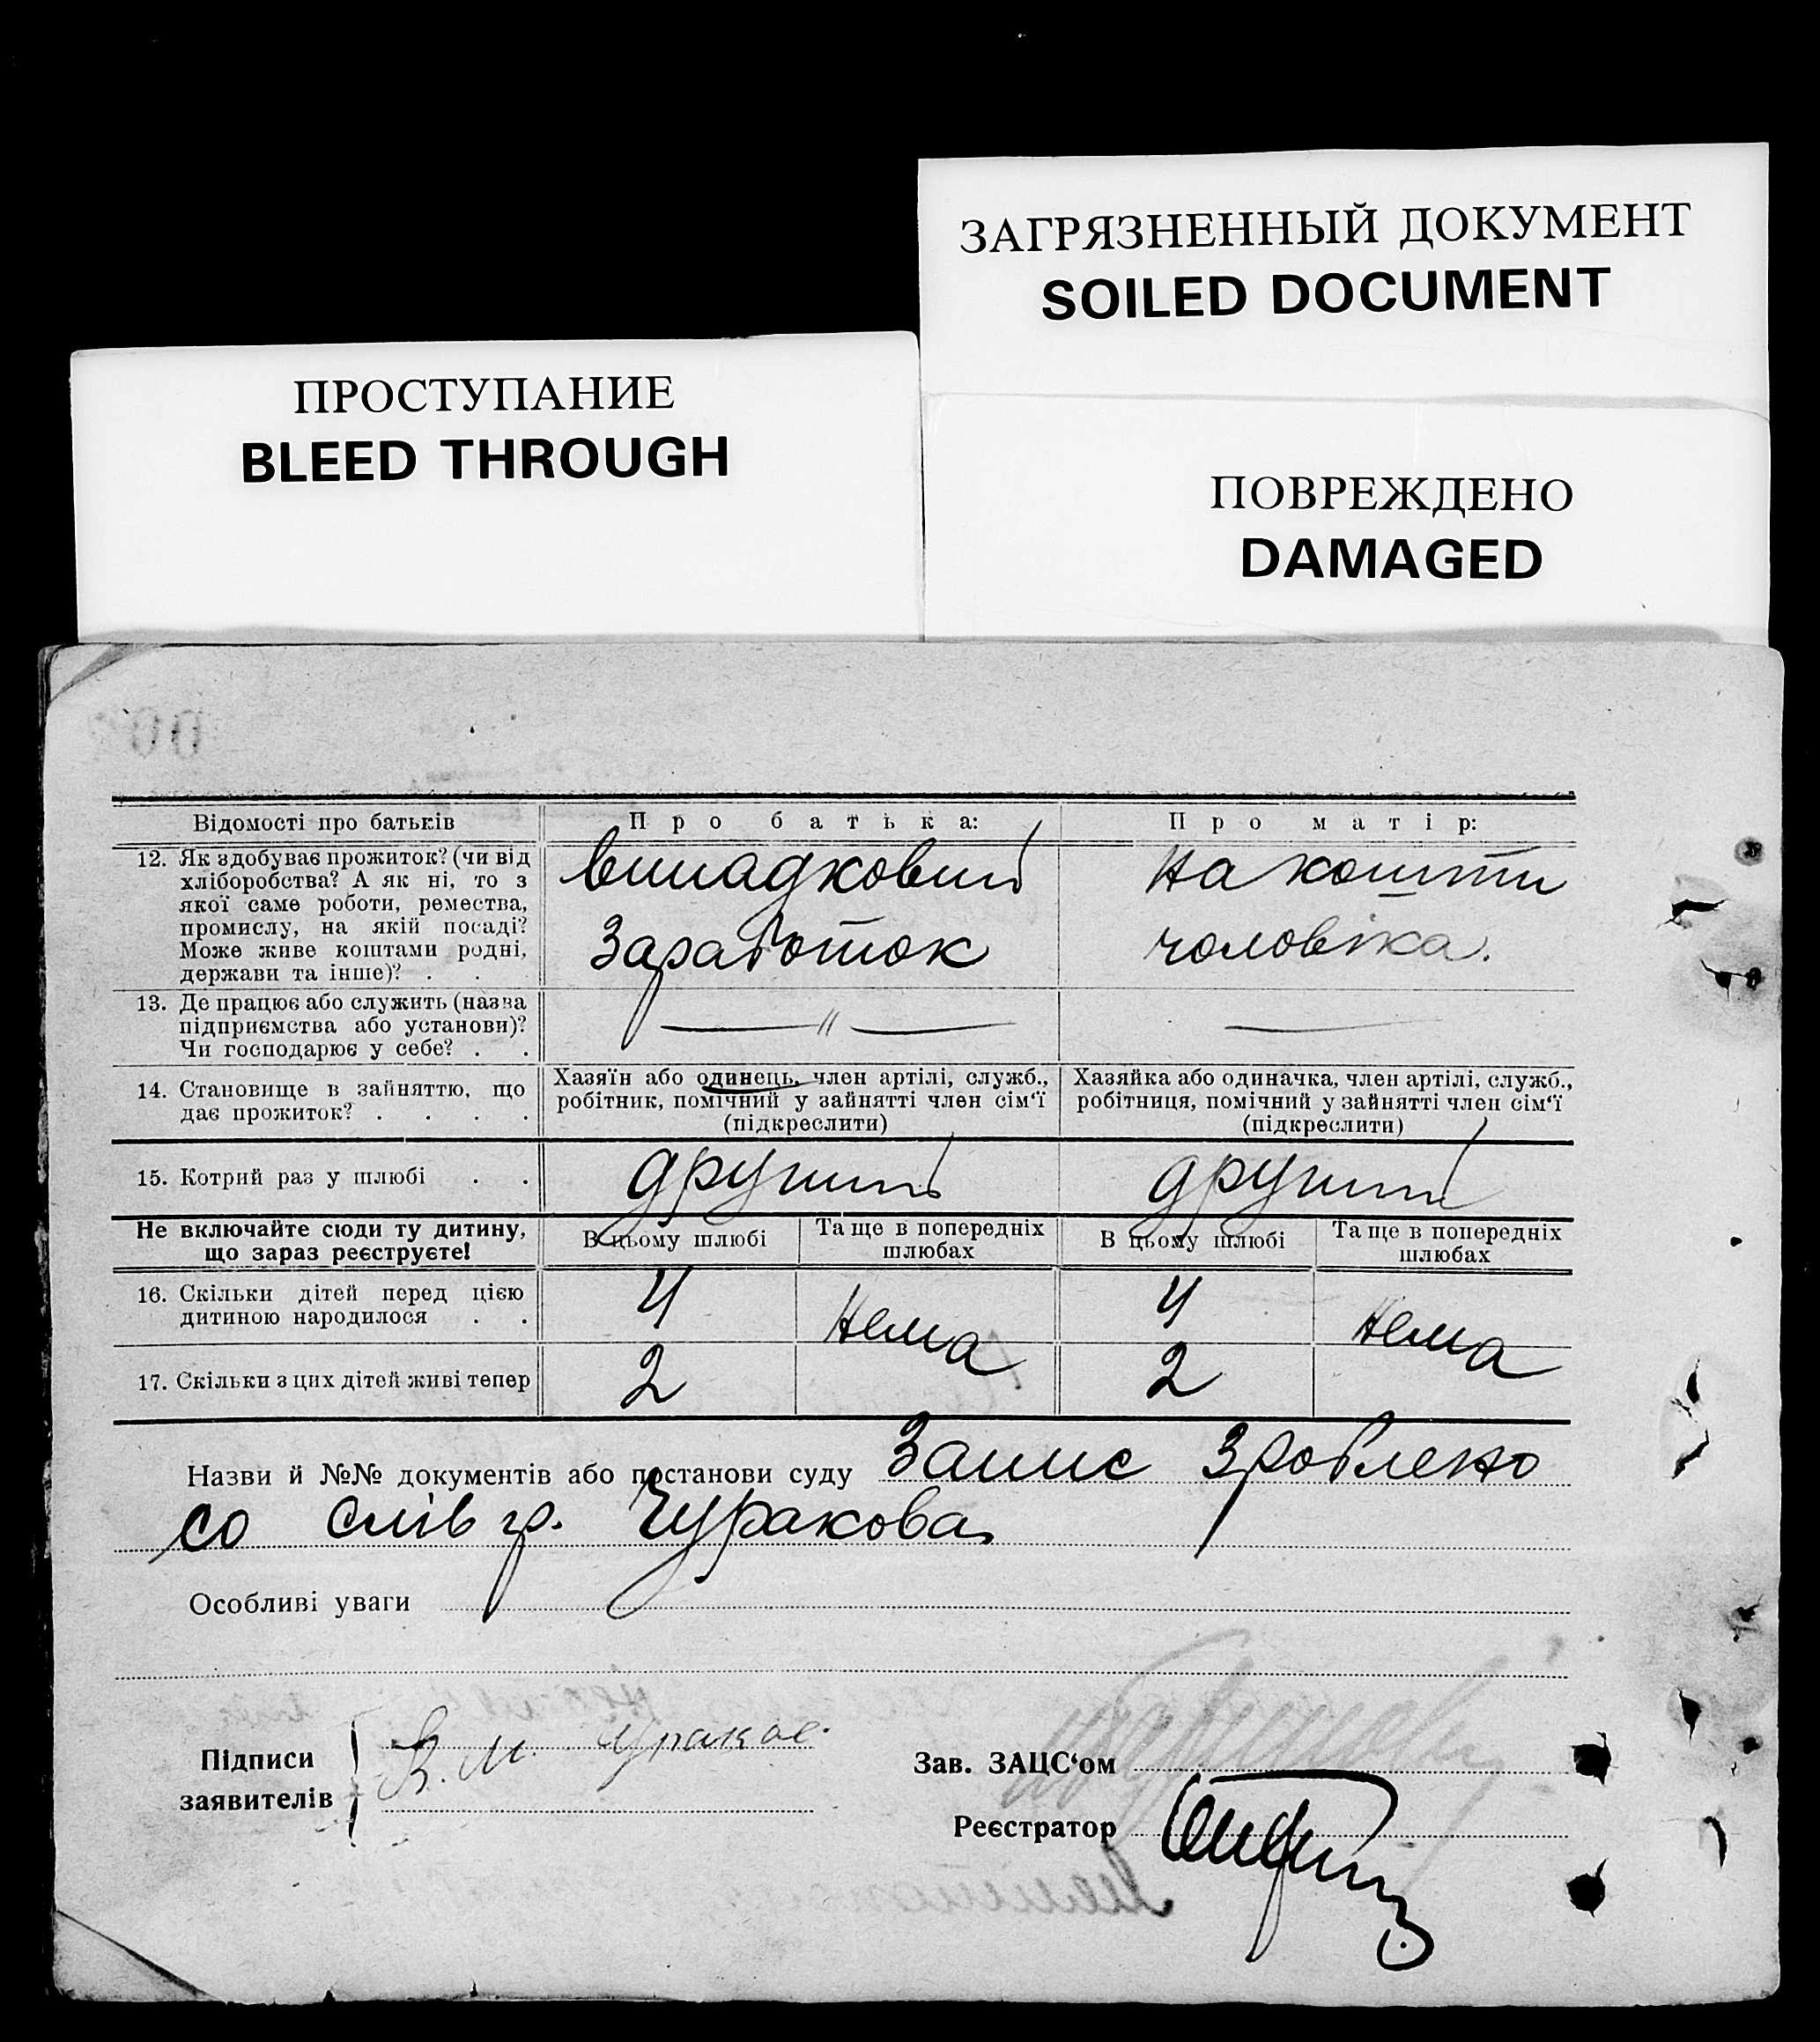 ЗАГРЯЗНЕННЫЙ ДОКУМЕНТ
SOILED DOCUMENT
ПРОСТУПАНИЕ
BLEED THROUGH
ПОВРЕЖДЕНО
DAMAGED
Відомості про батьків
Про батька:
Про матір:
12. Як здобуває прожиток? (чи від
хліборобства? А як ні, то з
якої саме роботи, ремества,
промислу, на якій посаді?
Може живе коштами родні,
держави та інше)? . . .
випадковий
заработок
на кошти
чоловіка.
13. Де працює або служить (назва
підприємства або установи)?
Чи господарює у себе? . .
— " —
—
14. Становище в зайняттю, що
дає прожиток? . . . .
Хазяїн або одинець, член артілі, служб.,
робітник, помічний у зайнятті член сім‘ї
(підкреслити)
Хазяйка або одиначка, член артілі, служб.,
робітниця, помічний у зайнятті член сім‘ї
(підкреслити)
15. Котрий раз у шлюбі . .
другий
другий
Не включайте сюди ту дитину,
що зараз реєструєте!
В цьому шлюбі
Та ще в попередніх
шлюбах
В цьому шлюбі
Та ще в попередніх
шлюбах
16. Скільки дітей перед цією
дитиною народилося . .
4
Нема
4
Нема
17. Скільки з цих дітей живі тепер
2
2
Назви й №№ документів або постанови суду Запис зроблено
со слів гр. Чуракова
Особливі уваги
Підписи
заявителів
Зав. ЗАЦС‘ом
Реєстратор